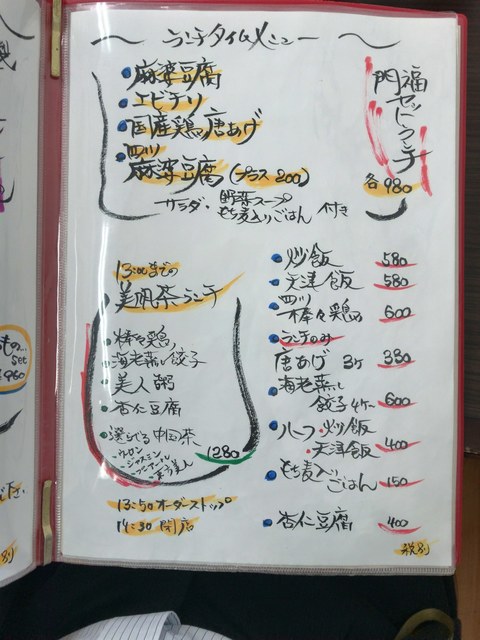 ランチタイムメニュー
麻婆豆腐
エビチリ
国産鶏の唐あげ
四川
麻婆豆腐(プラス200)
サラダ・野菜スープ
もち麦入りごはん 付き
門福
セットランチ
各980
13:00までの
美帆茶ランチ
棒々鶏
海老蒸し餃子
美人粥
杏仁豆腐
選べる中国茶
・ウーロン
・ジャスミン
・プーアール
・東方美人
1280
13:50オーダーストップ
14:30閉店
炒飯 580
天津飯 580
四川
棒々鶏 600
ランチのみ
唐あげ 3ケ 330
海老蒸し
餃子4ケ 600
ハーフ・炒飯
・天津飯 400
もち麦入りごはん 150
杏仁豆腐 400
税別
set
960
税別